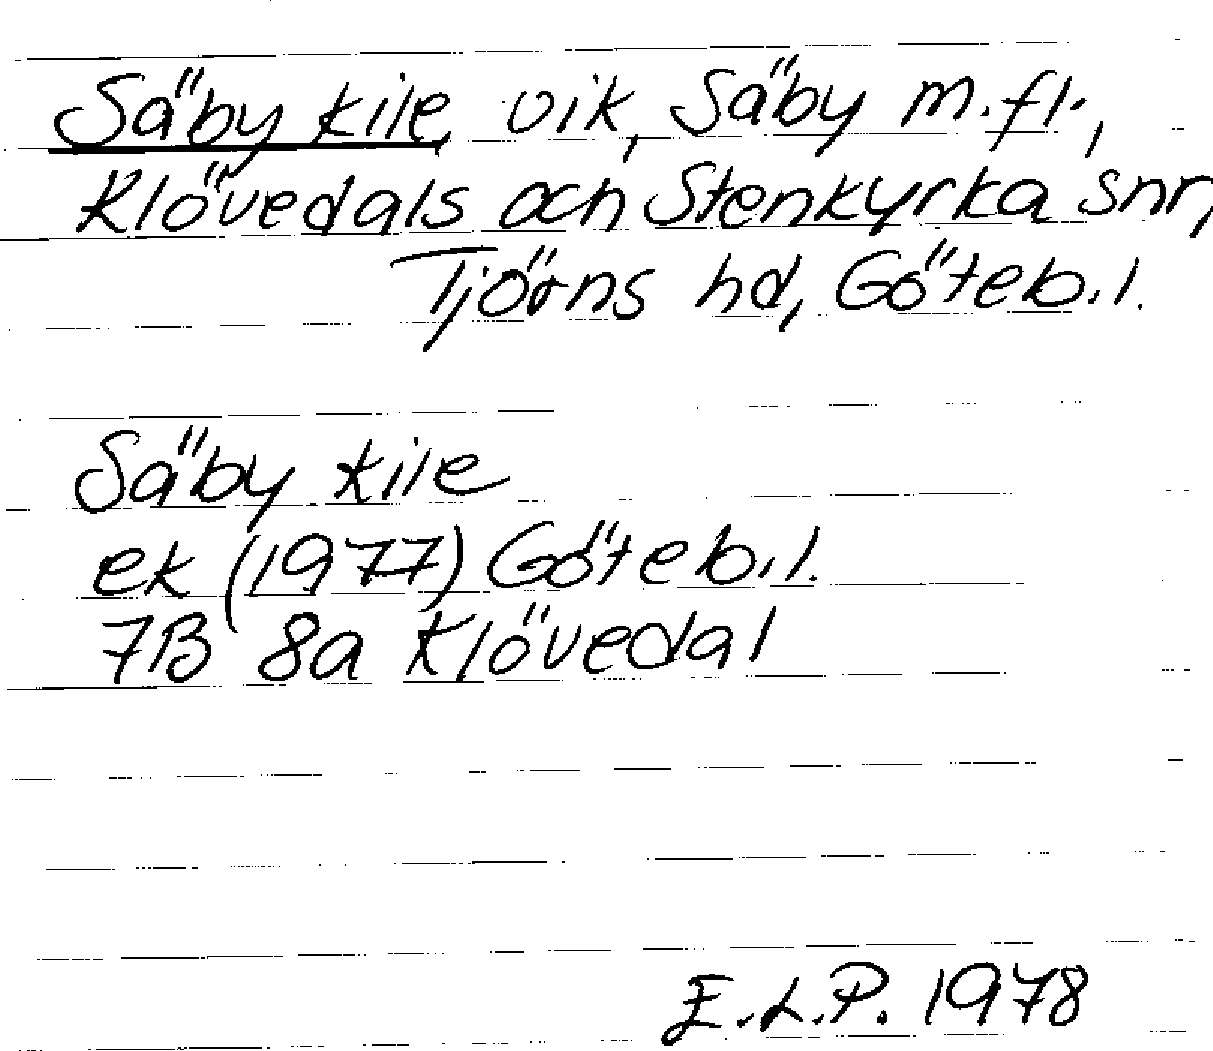 Säby kile, vik, Säby m.fl.,
Klövedals och Stenkyrka snr,
Tjörns hd, Göteb.l.
Säby kile
ek (1977) Göteb.l.
7B 8a Klövedal
E.L.P. 1978